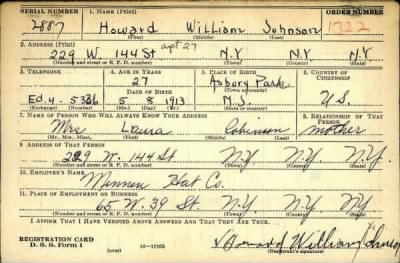 SERIAL NUMBER 1. NAME (Print) ORDER NUMBER
2887 Howard William Johnson 1722
(First) (Middle) (Last)
2. ADDRESS (Print) apt 27
229 W. 144 St N.Y N.Y N.Y
(Number and street or R. F. D. number) (Town) (County) (State)
3. TELEPHONE 4. AGE IN YEARS 5. PLACE OF BIRTH 6. COUNTRY OF CITIZENSHIP
27 Asbury Park
DATE OF BIRTH (Town or county)
Ed. 4-5336 5 8 1913 N.J. U.S.
(Exchange) (Number) (Mo.) (Day) (Yr.) (State or country)
7. NAME OF PERSON WHO WILL ALWAYS KNOW YOUR ADDRESS 8. RELATIONSHIP OF THAT PERSON
Mrs Laura Robinson mother
(Mr., Mrs., Miss) (First) (Middle) (Last)
9. ADDRESS OF THAT PERSON
229 W. 144 St N.Y. N.Y. N.Y.
(Number and street or R. F. D. number) (Town) (County) (State)
10. EMPLOYER'S NAME
Hat Co.
11. PLACE OF EMPLOYMENT OR BUSINESS
65 W. 39 St N.Y. N.Y.
(Number and street or R. F. D. number) (Town) (County) (State)
I AFFIRM THAT I HAVE VERIFIED ABOVE ANSWERS AND THAT THEY ARE TRUE.
REGISTRATION CARD
D. S. S. Form 1 (over) 16—17105 Howard William Johnson
(Registrant's signature)